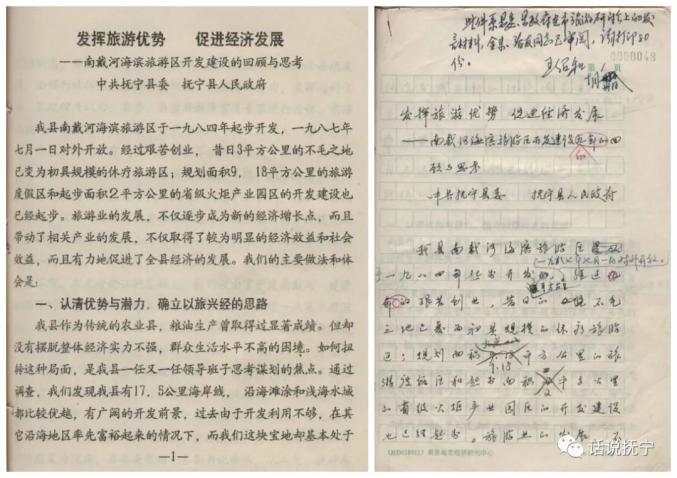 发挥旅游优势 促进经济发展
——南戴河海滨旅游区开发建设的回顾与思考
中共抚宁县委 抚宁县人民政府
我县南戴河海滨旅游区于一九八四年起步开发，一九八七年
七月一日对外开放。经过艰苦创业，昔日3平方公里的不毛之地
已变为初具规模的休疗旅游区；规划面积9．18平方公里的旅游
度假区和起步面积2平方公里的省级火炬产业园区的开发建设也
已经起步。旅游业的发展，不仅逐步成为新的经济增长点，而且
带动了相关产业的发展，不仅取得了较为明显的经济效益和社会
效益，而且有力地促进了全县经济的发展。我们的主要做法和体
会是：
一、认清优势与潜力，确立以旅兴经的思路
我县作为传统的农业县，粮油生产曾取得过显著成绩。但却
没有摆脱整体经济实力不强，群众生活水平不高的困境。如何扭
转这种局面，是我县一任又一任领导班子思考谋划的焦点。通过
调查，我们发现我县有17．5公里海岸线，沿海滩涂和浅海水域
都比较优越，有广阔的开发前景，过去由于开发利用不够，在其
它沿海地区率先富裕起来的情况下，而我们这块宝地却基本处于
—1—
0000048
第1页
发挥旅游优势 促进经济发展
——南戴河海滨旅游区开发建设的回
顾与思考
中共抚宁县委 抚宁县人民政府
我县南戴河海滨旅游区
于一九八四年起步开发
艰苦创业，昔日的 不毛
之地已变为初具规模的休疗旅游
区；规划面积9.18平方公里的旅
游度假区和起步面积2平方公里
的省级火炬产业园区的开发建设
也已经起步。旅游业的发展，不
话说抚宁